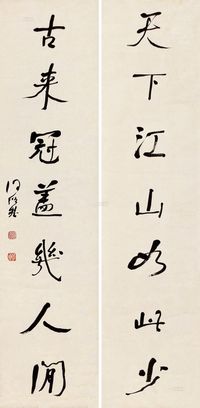 天下江山如此少
古来冠盖几人闲